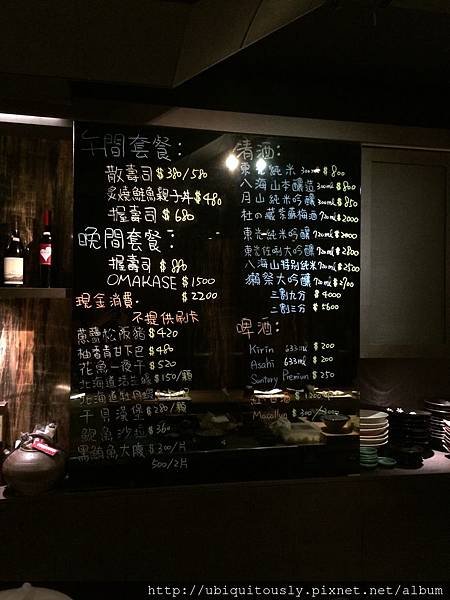 午間套餐:
散壽司 $380/580
炙燒鮭魚親子丼 $480
握壽司 $680
晚間套餐:
握壽司 $880
OMAKASE $1500
$2200
現金消費.
不提供刷卡
蔥鹽松阪豬 $420
柚香青甘下巴 $480
花魚一夜干 $520
北海道活生蠔 $150/顆
北海道牡丹蝦
干貝漢堡 $280/顆
鮭魚沙拉 $360
黑鮪魚大腹 $300/片
500/2片
清酒:
東光純米 300ml $800
八海山本釀造 300ml $800
月山純米吟釀 300ml $850
杜の蔵紫蘇梅酒 720ml $2000
東光純米吟釀 720ml $2000
東光左利大吟釀 720ml $2800
八海山特別純米 720ml $2500
獺祭大吟釀 720ml $2700
三割九分 $4000
二割三分 $5600
啤酒:
Kirin 633ml $200
Asahi 633ml $200
Suntory Premium $250
Macallan
http://ubiquitously.pixnet.net/album